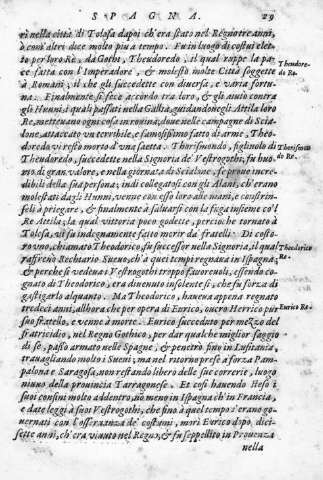 SPAGNA. 29
ri nella città di Tolosa dapoi ch'era stato nel Regno tre anni,
ò com'altri dice molto piu a tempo. Fu in luogo di costui elet-
to per loro Re, da Gothi, Theudoredo, il qual roppe la pa-
ce fatta con l'Imperadore, & molestò molte Città soggette
à Romani; il che gli succedette con diuersa, e varia fortu-
na. Finalmente si fece accordo tra loro, & gli aiutò contra
gli Hunni, i quali passati nella Gallia, guidandogli Attila loro
Re, metteuano ogni cosa in rovina, doue nelle campagne di Scia-
lone, attaccato vn terribile, e famosissimo fatto di arme, Theo-
doredo vi restò morto d'vna saetta. Thorismondo, figliuolo di
Theudoredo, succedette nella Signoria de' Vestrogothi, fu huo-
mo di gran valore, e nella giornata di Scialone, fe proue incre-
dibili della sua persona; indi collegatosi con gli Alani, ch'erano
molestati dagli Hunni, venne con esso loro alle mani, e constrin-
seli à priegare, & finalmente à saluarsi con la fuga insieme co'l
Re Attila; la qual vittoria poco godette, percioche tornato à
Tolosa, vi fu indegnamente fatto morir da' fratelli. Di costo-
ro vno, chiamato Theodorico, fu successor nella Signoria, il qual
raffrenò Rechiario Sueuo, ch'a quei tempi regnaua in Ispagna;
& perche si vedeua i Vestrogothi troppo fauoreuoli, essendo co-
gnato di Theodorico, era diuenuto insolente sì, che fu forza di
gastigarlo alquanto. Ma Theodorico, haueua appena regnato
tredeci anni, allhora che per opera di Enrico, ouero Herrico pur
suo fratello, e venne à morte. Eurico succeduto per mezzo del
fratricidio, nel Regno Gothico, per dar qualche miglior saggio
di se, passò armato nelle Spagne, & penetrò fino in Lusitania,
trauagliando molto i Sueui; ma nel ritorno prese a forza Pam-
palona e Saragosa, non restando libero delle sue correrie, luogo
niuno della prouincia Tarragonese. Et così hauendo Heso i
suoi confini molto addentro, no meno in Ispagna ch'in Francia,
e date leggi à suoi Vestrogothi, che sino à quel tempo s'erano go-
uernati con l'osseruanza de' costumi, morì Eurico dopò, dici-
sette anni, ch'era viuuto nel Regno, & fu seppellito in Prouenza
nella
Theudore-
do Re.
Thorismon
do Re.
Theodorico
Re.
Eurico Re.